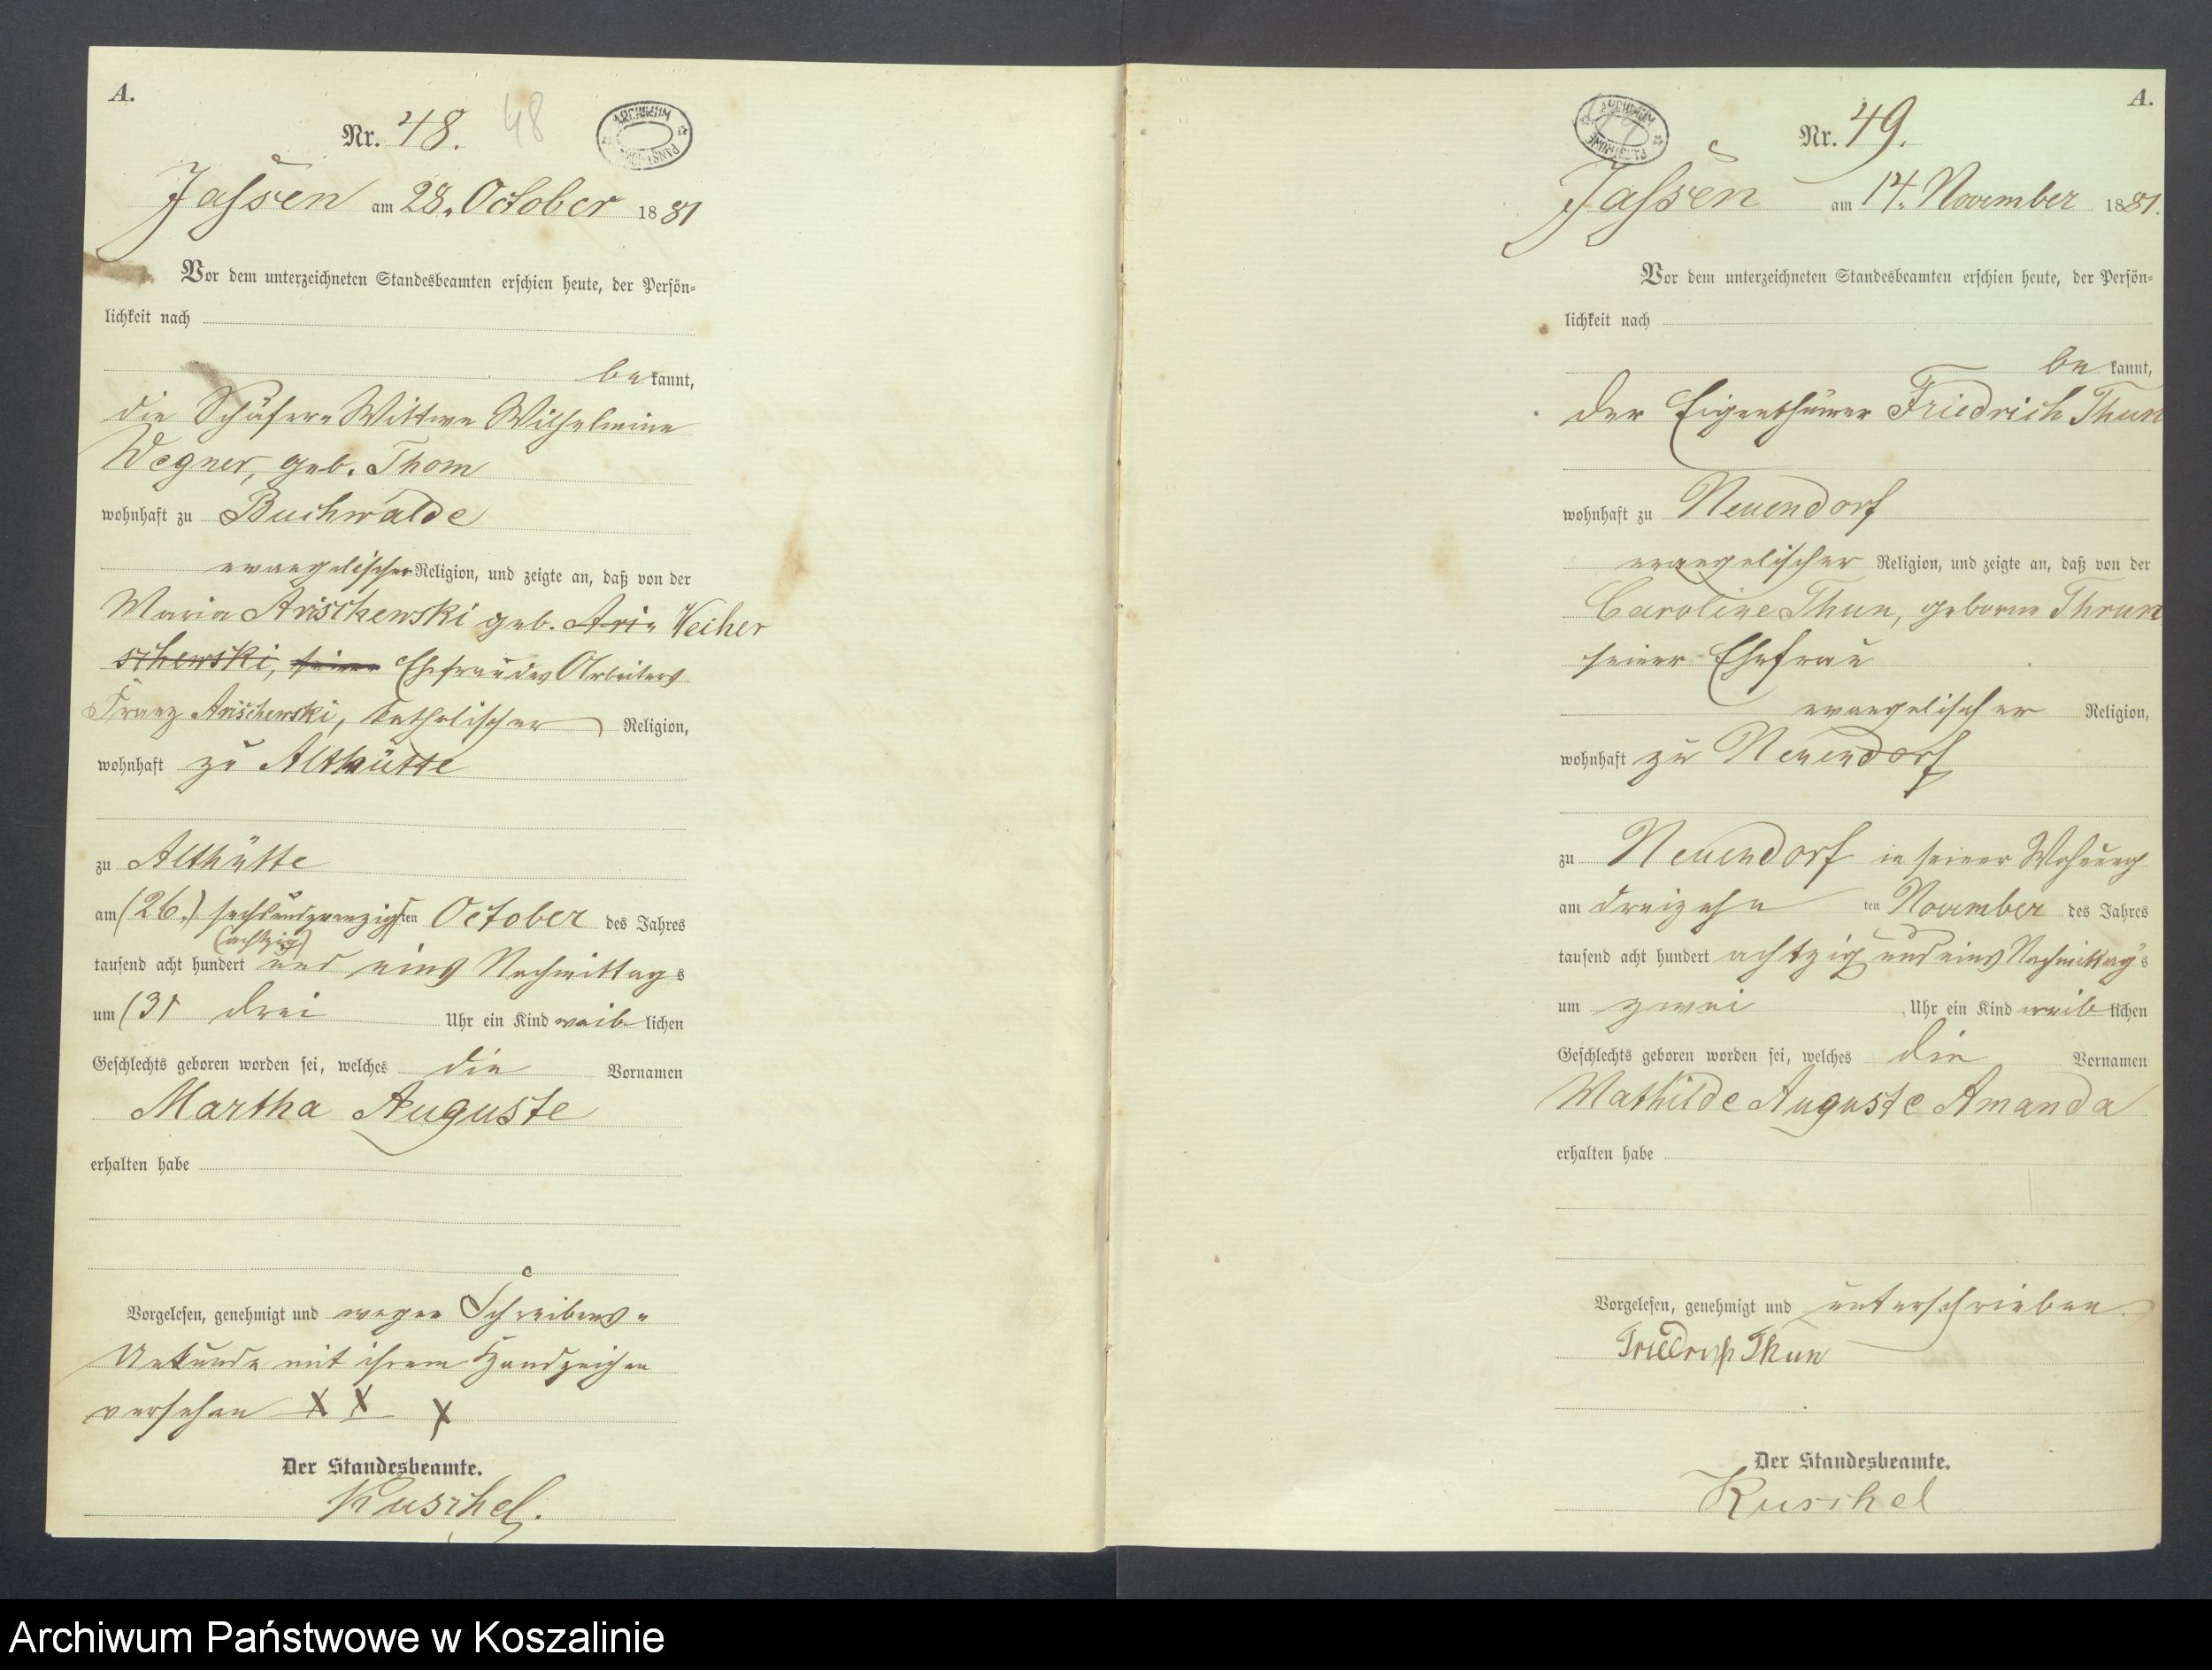 A.
Nr. 48. 48
ARCHIWUM PAŃSTWOWE
Jassen am 28. October 1881
Vor dem unterzeichneten Standesbeamten erschien heute, der Persön-
lichkeit nach
bekannt,
die Schäfer-Wittwe Wilhelmine
Wegner, geb. Thom
wohnhaft zu Buchwalde
evangelischer Religion, und zeigte an, daß von der
Maria Arischewski geb. Ari- Weiher
schewski, seiner Ehefrau des Arbeiters
Franz Arischewski, katholischer Religion,
wohnhaft zu Althütte
zu Althütte
am (26.) sechsundzwanzigsten October des Jahres
(achtzig)
tausend acht hundert und eins Nachmittags
um (3) drei Uhr ein Kind weiblichen
Geschlechts geboren worden sei, welches die Vornamen
Martha Auguste
erhalten habe
Vorgelesen, genehmigt und wegen Schreibens-
Unkunde mit ihrem Handzeichen
versehen X X X
Der Standesbeamte.
Kuschel.
A.
Nr. 49.
ARCHIWUM PAŃSTWOWE
Jassen am 14. November 1881.
Vor dem unterzeichneten Standesbeamten erschien heute, der Persön-
lichkeit nach
bekannt,
der Eigenthümer Friedrich Thun
wohnhaft zu Neuendorf
evangelischer Religion, und zeigte an, daß von der
Caroline Thun, geborne Thrun
seiner Ehefrau
evangelischer Religion,
wohnhaft zu Neuendorf
zu Neuendorf in seiner Wohnung
am dreizehnten November des Jahres
tausend acht hundert achtzig und eins Nachmittags
um zwei Uhr ein Kind weiblichen
Geschlechts geboren worden sei, welches die Vornamen
Mathilde Auguste Amanda
erhalten habe
Vorgelesen, genehmigt und unterschrieben
Friedrich Thun
Der Standesbeamte.
Kuschel
Archiwum Państwowe w Koszalinie